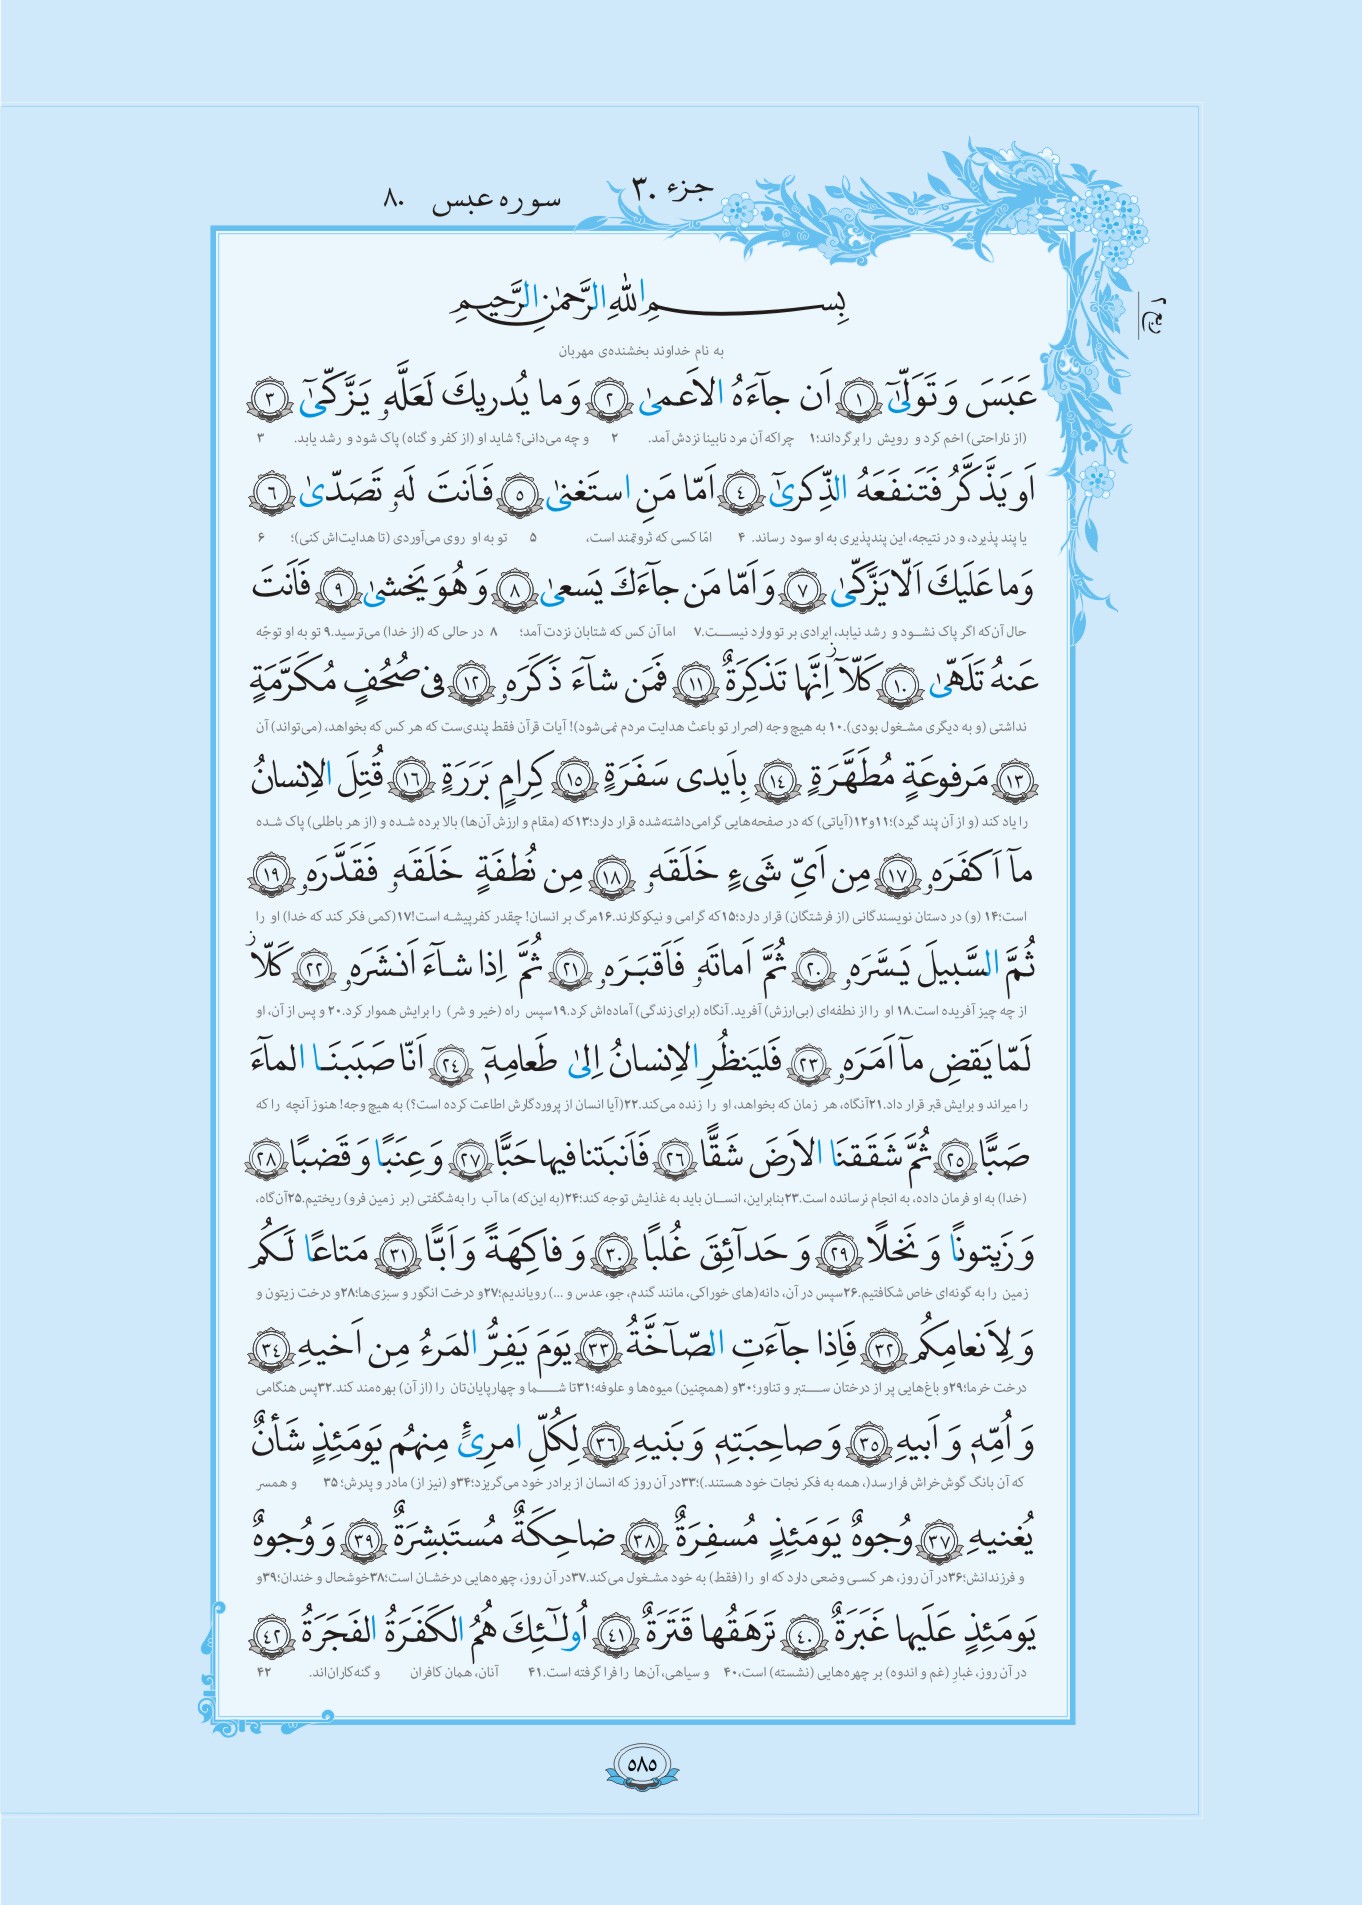 جزء ۳۰
سوره عبس ۸۰
ربع ۲
بِسمِ اللّٰهِ الرَّحمٰنِ الرَّحيمِ
به نام خداوند بخشنده‌ی مهربان
عَبَسَ وَ تَوَلّىٰٓ ﴿١﴾ اَن جآءَهُ الاَعمىٰ ﴿٢﴾ وَ ما يُدريكَ لَعَلَّهٗ يَزَّكّىٰٓ ﴿٣﴾
(از ناراحتی) اخم کرد و رویش را برگرداند؛۱ چراکه آن مرد نابینا نزدش آمد. ۲ و چه می‌دانی؟ شاید او (از کفر و گناه) پاک شود و رشد یابد. ۳
اَو يَذَّكَّرُ فَتَنفَعَهُ الذِّكرىٰٓ ﴿٤﴾ اَمّا مَنِ استَغنىٰ ﴿٥﴾ فَاَنتَ لَهٗ تَصَدّىٰ ﴿٦﴾
یا پند پذیرد، و در نتیجه، این پندپذیری به او سود رساند. ۴ امّا کسی که ثروتمند است، ۵ تو به او روی می‌آوردی (تا هدایت‌اش کنی)؛ ۶
وَ ما عَلَيكَ اَلّا يَزَّكّىٰ ﴿٧﴾ وَ اَمّا مَن جآءَكَ يَسعىٰ ﴿٨﴾ وَ هُوَ يَخشىٰ ﴿٩﴾ فَاَنتَ
حال آن‌که اگر پاک نشود و رشد نیابد، ایرادی بر تو وارد نیست.۷ اما آن کس که شتابان نزدت آمد؛ ۸ در حالی که (از خدا) می‌ترسید.۹ تو به او توجّه
عَنهُ تَلَهّىٰ ﴿١٠﴾ كَلّآ ز اِنَّها تَذكِرَةٌ ﴿١١﴾ فَمَن شآءَ ذَكَرَهٗ ﴿١٢﴾ فى صُحُفٍ مُكَرَّمَةٍ
نداشتی (و به دیگری مشغول بودی).۱۰ به هیچ وجه (اصرار تو باعث هدایت مردم نمی‌شود)! آیات قرآن فقط پندی‌ست که هر کس که بخواهد، (می‌تواند) آن
﴿١٣﴾ مَرفوعَةٍ مُطَهَّرَةٍ ﴿١٤﴾ بِاَيدى سَفَرَةٍ ﴿١٥﴾ كِرامٍ بَرَرَةٍ ﴿١٦﴾ قُتِلَ الاِنسانُ
را یاد کند (و از آن پند گیرد)؛۱۱و۱۲(آیاتی) که در صفحه‌هایی گرامی‌داشته‌شده قرار دارد؛۱۳که (مقام و ارزش آن‌ها) بالا برده شده و (از هر باطلی) پاک شده
مآ اَكفَرَهٗ ﴿١٧﴾ مِن اَىِّ شَىءٍ خَلَقَهٗ ﴿١٨﴾ مِن نُطفَةٍ خَلَقَهٗ فَقَدَّرَهٗ ﴿١٩﴾
است؛۱۴ (و) در دستان نویسندگانی (از فرشتگان) قرار دارد؛۱۵که گرامی و نیکوکارند.۱۶مرگ بر انسان! چقدر کفرپیشه است!۱۷(کمی فکر کند که خدا) او را
ثُمَّ السَّبيلَ يَسَّرَهٗ ﴿٢٠﴾ ثُمَّ اَماتَهٗ فَاَقبَرَهٗ ﴿٢١﴾ ثُمَّ اِذا شآءَ اَنشَرَهٗ ﴿٢٢﴾ كَلّا ز
از چه چیز آفریده است.۱۸ او را از نطفه‌ای (بی‌ارزش) آفرید. آنگاه (برای زندگی) آماده‌اش کرد.۱۹سپس راه (خیر و شر) را برایش هموار کرد.۲۰ و پس از آن، او
لَمّا يَقضِ مآ اَمَرَهٗ ﴿٢٣﴾ فَليَنظُرِ الاِنسانُ اِلىٰ طَعامِهٖٓ ﴿٢٤﴾ اَنّا صَبَبنَا المآءَ
را میراند و برایش قبر قرار داد.۲۱آنگاه، هر زمان که بخواهد، او را زنده می‌کند.۲۲(آیا انسان از پروردگارش اطاعت کرده است؟) به هیچ وجه! هنوز آنچه را که
صَبًّا ﴿٢٥﴾ ثُمَّ شَقَقنَا الاَرضَ شَقًّا ﴿٢٦﴾ فَاَنبَتنا فيها حَبًّا ﴿٢٧﴾ وَ عِنَبًا وَ قَضبًا ﴿٢٨﴾
(خدا) به او فرمان داده، به انجام نرسانده است.۲۳بنابراین، انسان باید به غذایش توجه کند؛۲۴(به این‌که) ما آب را به‌شگفتی (بر زمین فرو) ریختیم.۲۵آن‌گاه،
وَ زَيتونًا وَ نَخلًا ﴿٢٩﴾ وَ حَدآئِقَ غُلبًا ﴿٣٠﴾ وَ فاكِهَةً وَ اَبًّا ﴿٣١﴾ مَتاعًا لَكُم
زمین را به گونه‌ای خاص شکافتیم.۲۶سپس در آن، دانه(های خوراکی، مانند گندم، جو، عدس و ...) رویاندیم؛۲۷و درخت انگور و سبزی‌ها؛۲۸و درخت زیتون و
وَ لِاَنعامِكُم ﴿٣٢﴾ فَاِذا جآءَتِ الصّآخَّةُ ﴿٣٣﴾ يَومَ يَفِرُّ المَرءُ مِن اَخيهِ ﴿٣٤﴾
درخت خرما؛۲۹و باغ‌هایی پر از درختان ستبر و تناور؛۳۰و (همچنین) میوه‌ها و علوفه؛۳۱تا شما و چهارپایان‌تان را (از آن) بهره‌مند کند.۳۲پس هنگامی
وَ اُمِّهٖ وَ اَبيهِ ﴿٣٥﴾ وَ صاحِبَتِهٖ وَ بَنيهِ ﴿٣٦﴾ لِكُلِّ امرِئٍ مِنهُم يَومَئِذٍ شَأنٌ
که آن بانگ گوش‌خراش فرارسد(، همه به فکر نجات خود هستند.)؛۳۳در آن روز که انسان از برادر خود می‌گریزد؛۳۴و (نیز از) مادر و پدرش؛ ۳۵ و همسر
يُغنيهِ ﴿٣٧﴾ وُجوهٌ يَومَئِذٍ مُسفِرَةٌ ﴿٣٨﴾ ضاحِكَةٌ مُستَبشِرَةٌ ﴿٣٩﴾ وَ وُجوهٌ
و فرزندانش؛۳۶در آن روز، هر کسی وضعی دارد که او را (فقط) به خود مشغول می‌کند.۳۷در آن روز، چهره‌هایی درخشان است؛۳۸خوشحال و خندان؛۳۹و
يَومَئِذٍ عَلَيها غَبَرَةٌ ﴿٤٠﴾ تَرهَقُها قَتَرَةٌ ﴿٤١﴾ اُولٰٓئِكَ هُمُ الكَفَرَةُ الفَجَرَةُ ﴿٤٢﴾
در آن روز، غبارِ (غم و اندوه) بر چهره‌هایی (نشسته) است،۴۰ و سیاهی، آن‌ها را فرا گرفته است.۴۱ آنان، همان کافران و گنه‌کاران‌اند. ۴۲
۵۸۵